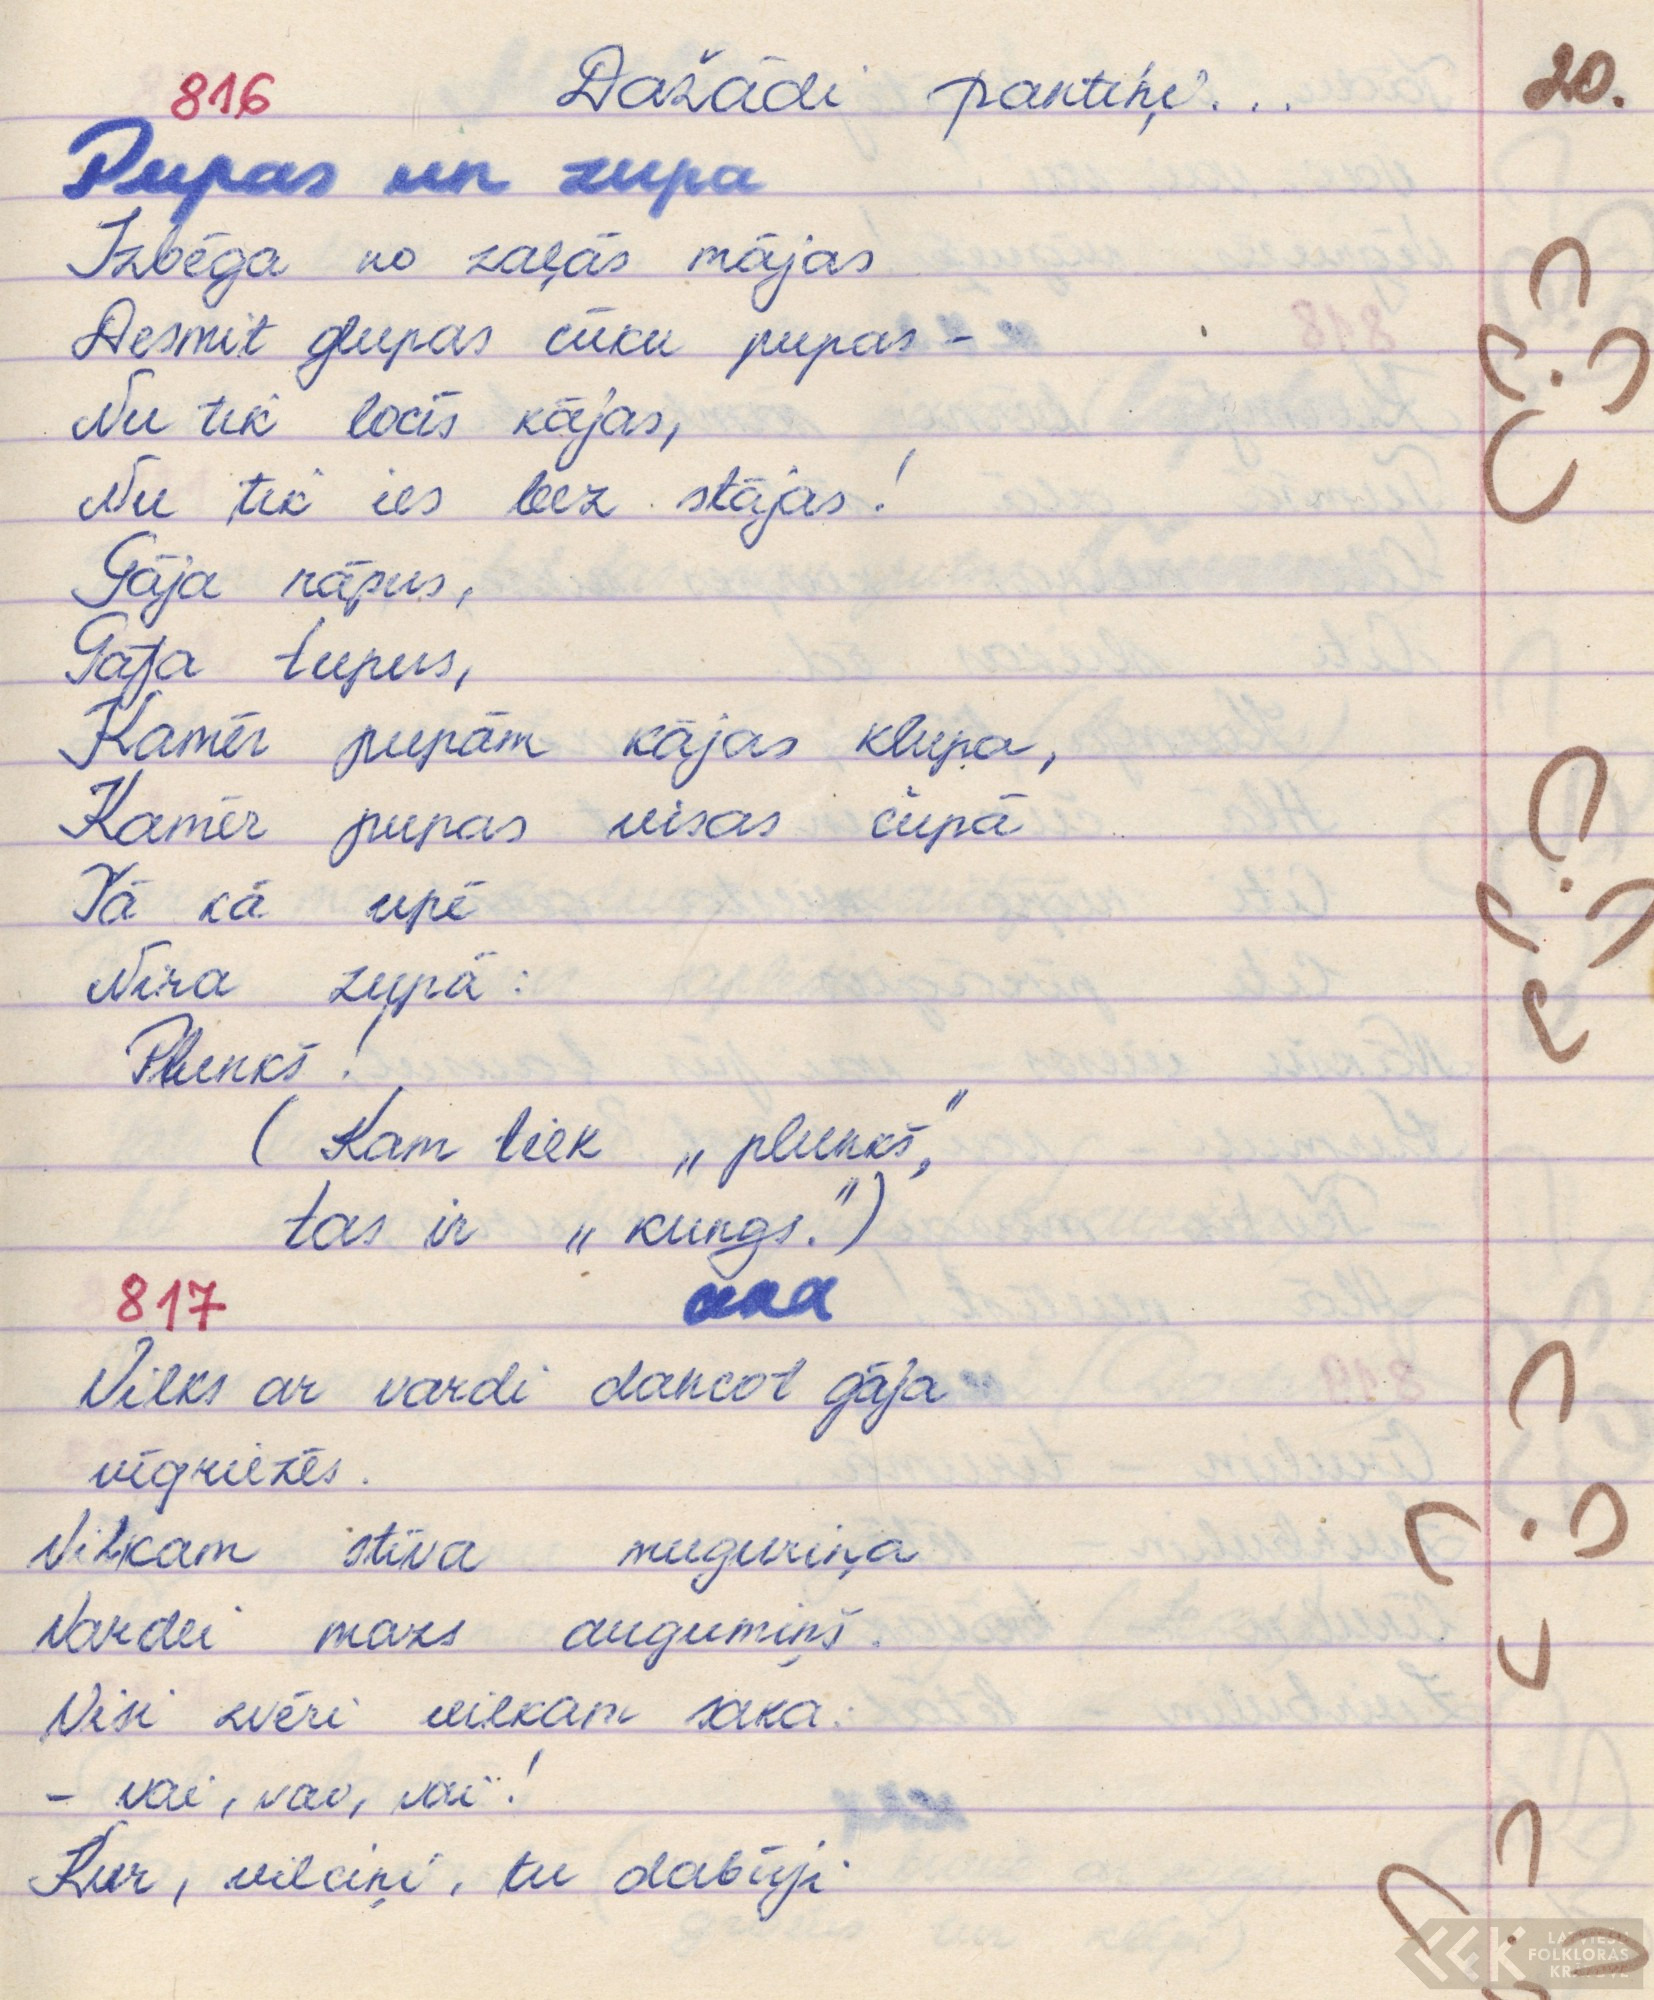 816 Dažādi pantiņi... 20.
Pupas un zupa
Izbēga no zaļās mājas
Desmit glupas cūku pupas -
Nu tik locīs kājas,
Nu tik ies bez stājas!
Gāja rāpus,
Gāja tupus,
Kamēr pupām kājas klupa,
Kamēr pupas visas čupā
Kā kā upē
Nira zupā:
Plunkš!
( Kam tiek „plunkš,"
tas ir „kungs.")
817
Vilks ar vardi dancot gāja
vēgriezēs.
Vilkam stīva muguriņa
Vardei mazs augumiņš.
Visi zvēri vilkam saka:
- vai, vai, vai!
Kur, vilciņi, tu dabūji
LATVIEŠU
FOLKLORAS
KRĀTUVE